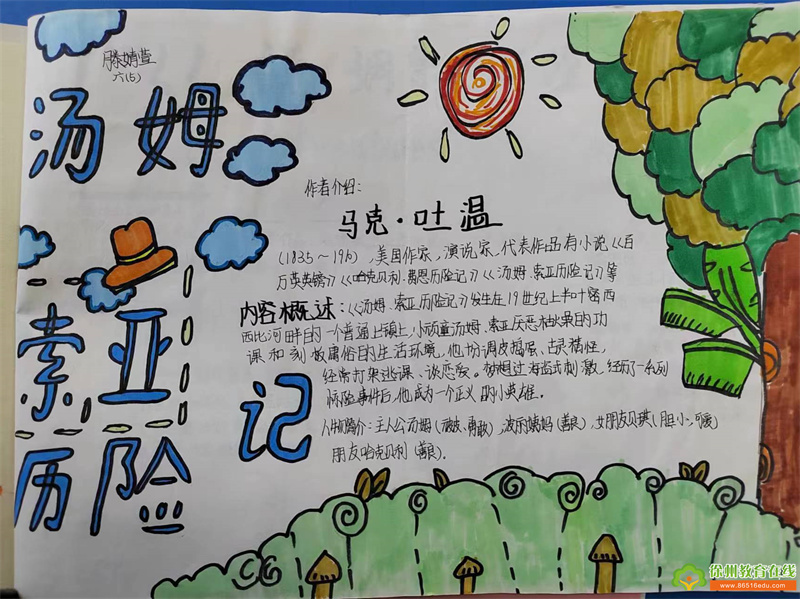 滕婧萱
六(5)
汤姆
索亚
历险
记
作者介绍:
马克·吐温
(1835~196),美国作家,演说家,代表作品有小说《百
万英镑》《哈克贝利·费恩历险记》《汤姆·索亚历险记》等
内容概述:《汤姆·索亚历险记》发生在19世纪上半叶密西
西比河畔的一个普通小镇上,小顽童汤姆·索亚厌恶枯燥的功
课和刻板庸俗的生活环境,他扮调皮捣蛋、古灵精怪,
经常打架逃课、谈恋爱。梦想过海盗式刺激,经历了一系列
惊险事件后,他成为一个正义的小英雄。
人物简介:主人公汤姆(顽皮、勇敢),波丽姨妈(善良),女朋友贝琪(胆小,可爱)
朋友哈克贝利(善良).
徐州教育在线
www.86516edu.com